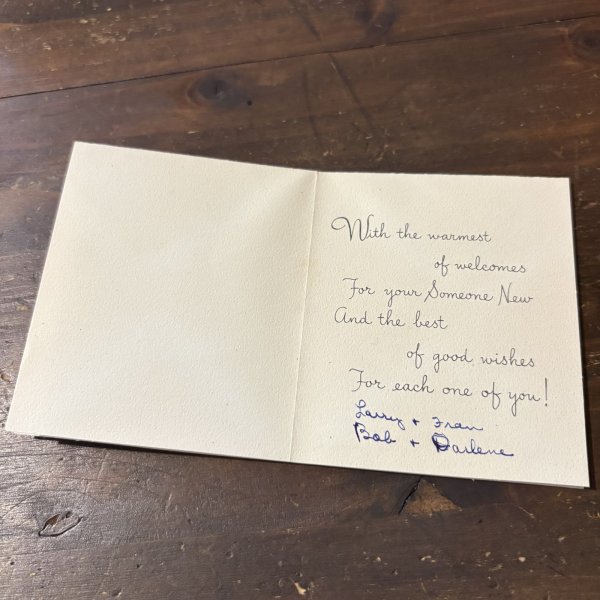 With the warmest
of welcomes
For your Someone New
And the best
of good wishes
For each one of you!
Larry + Fran
Bob + Darlene